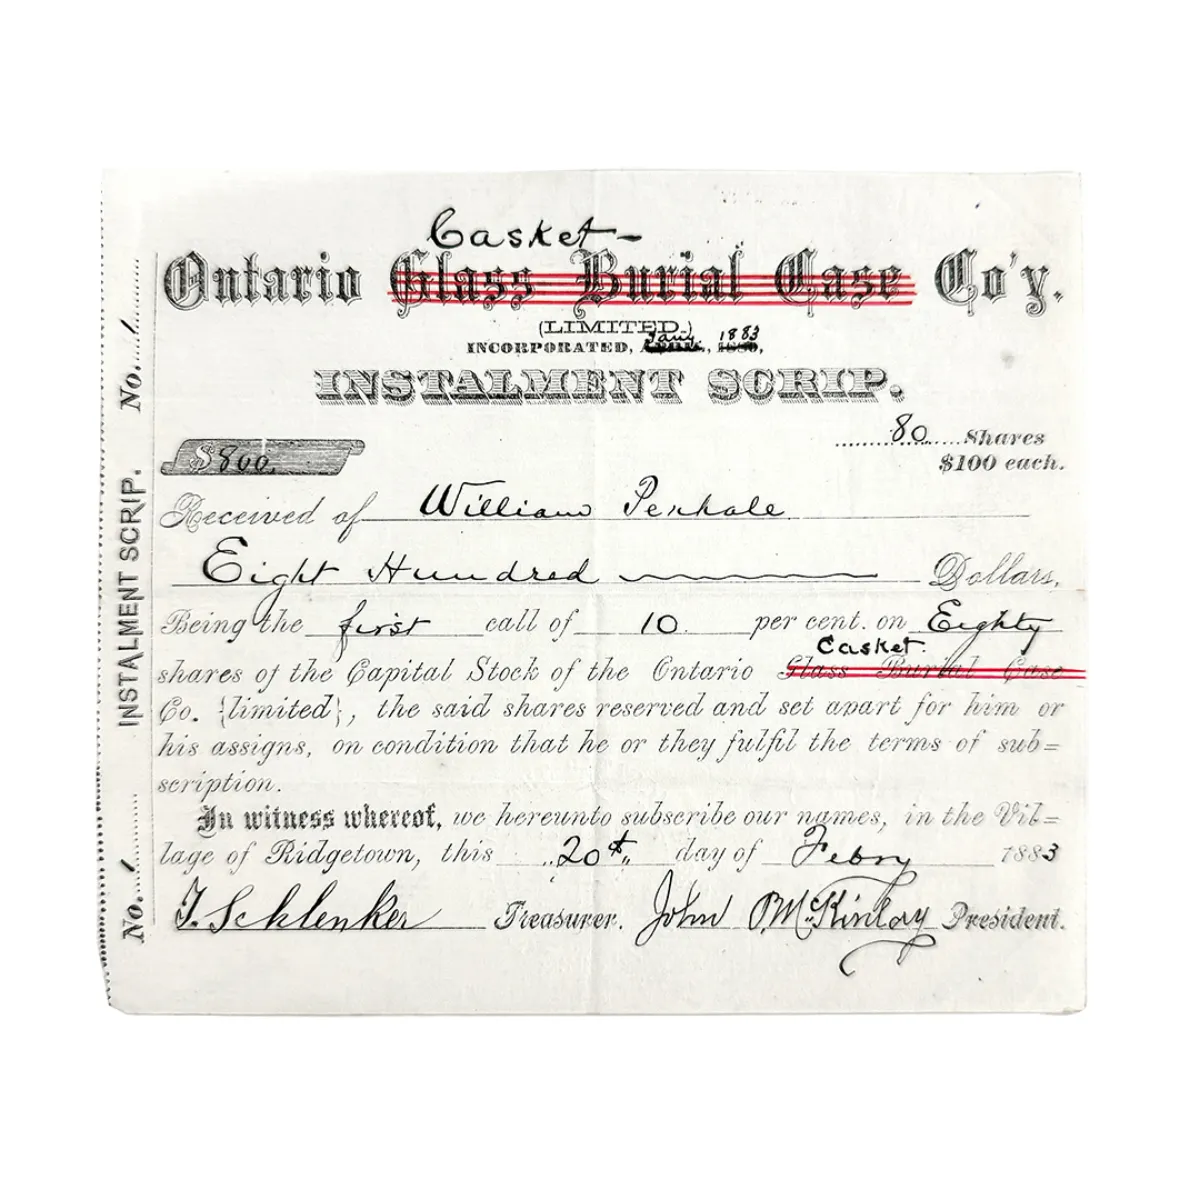 Casket –
Ontario Glass Burial Case Co'y.
(LIMITED.)
INCORPORATED, Jany. 1883,
INSTALMENT SCRIP.
80 Shares
$100 each.
$800.
Received of William Penhale
Eight Hundred Dollars,
Being the first call of 10 per cent. on Eighty
Casket.
shares of the Capital Stock of the Ontario Glass Burial Case
Co. {limited}, the said shares reserved and set apart for him or
his assigns, on condition that he or they fulfil the terms of sub=
scription.
In witness whereof, we hereunto subscribe our names, in the Vil=
lage of Ridgetown, this 20th day of Febry 1883
Schlenker Treasurer. John McKinlay President.
No. 1 INSTALMENT SCRIP. No. 1